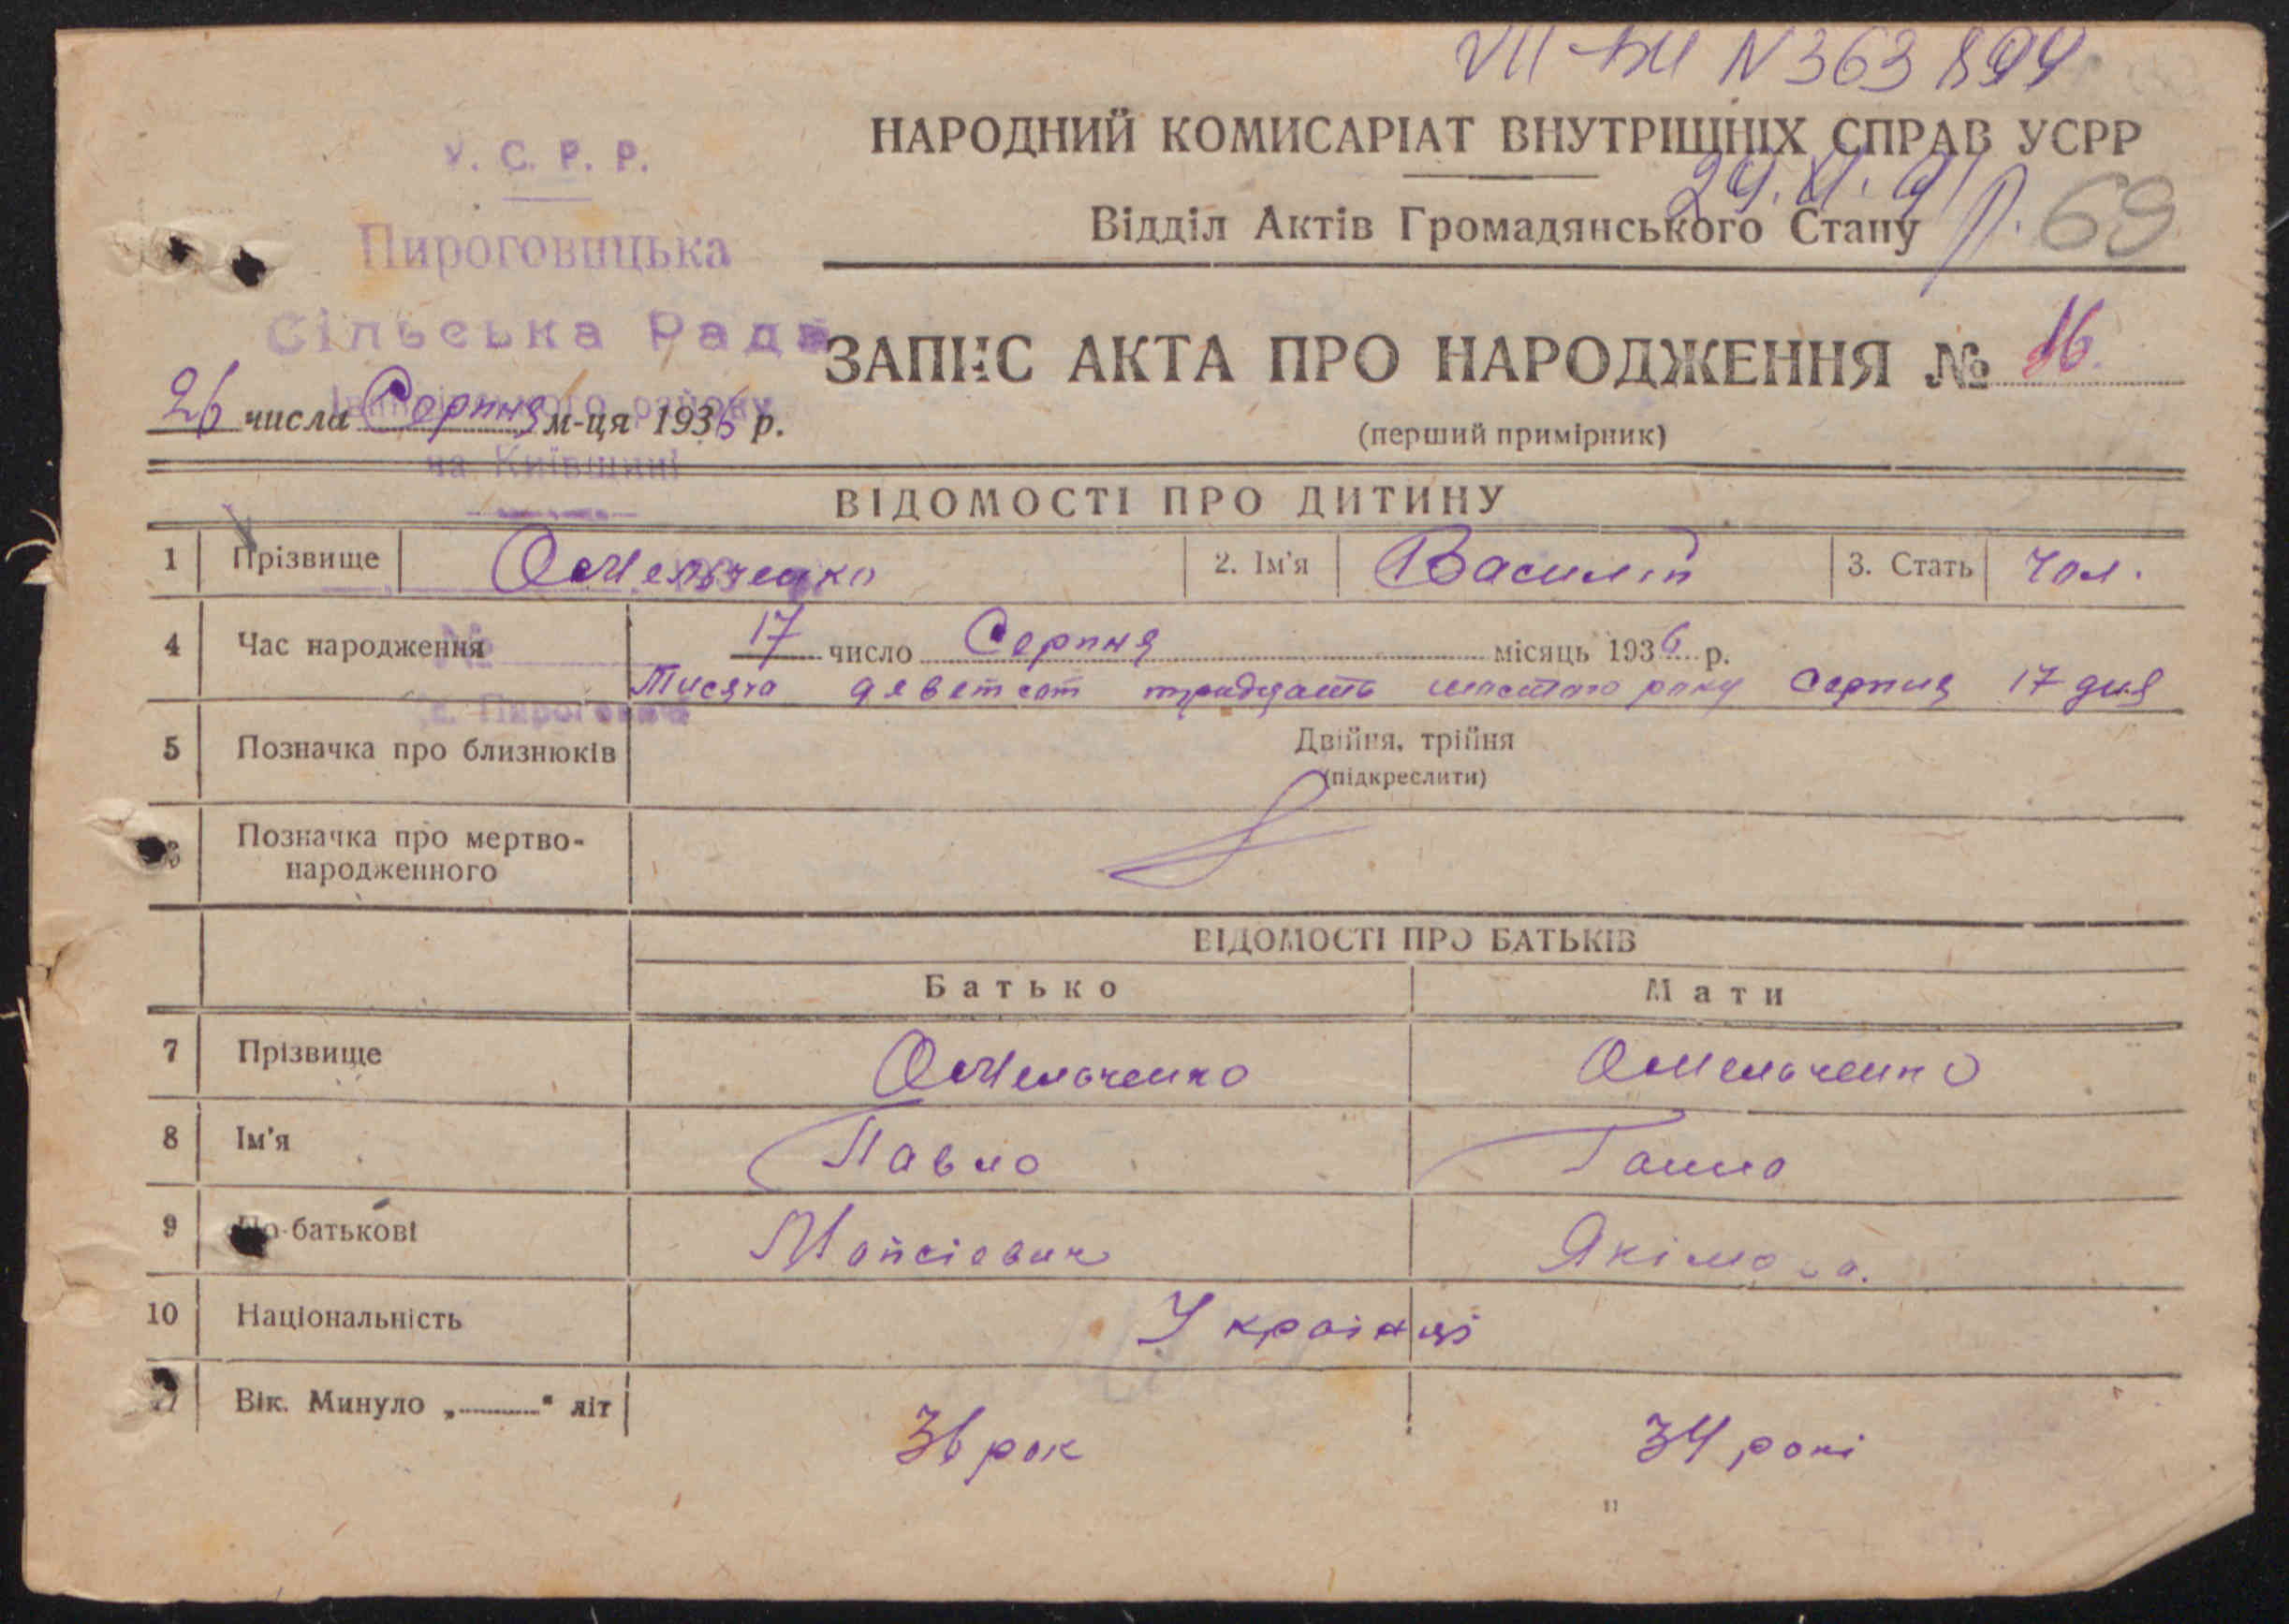 VII-БК N 363894
У. С. Р. Р.
НАРОДНИЙ КОМИСАРІАТ ВНУТРІШНІХ СПРАВ УСРР
Відділ Актів Громадянського Стану
69
Пироговицька
Сільська Рада
ЗАПИС АКТА ПРО НАРОДЖЕННЯ № 16.
26 числа Серпня м-ця 1936 р.
(перший примірник)
на Київщині
ВІДОМОСТІ ПРО ДИТИНУ
1 Прізвище Омельченко 2. Ім'я Василій 3. Стать чол.
4 Час народження 17 число Серпня місяць 1936 р.
№
Тисяча деветсот тридцать шостого року Серпня 17 дня
5 Позначка про близнюків Двійня, трійня
(підкреслити)
6 Позначка про мертво-
народженного
ВІДОМОСТІ ПРО БАТЬКІВ
Батько Мати
7 Прізвище Омельченко Омельченко
8 Ім'я Павло Ганна
9 По-батькові Мойсієвич Якімова.
10 Національність Українці
11 Вік. Минуло „ “ літ 36 рок 34 рокі